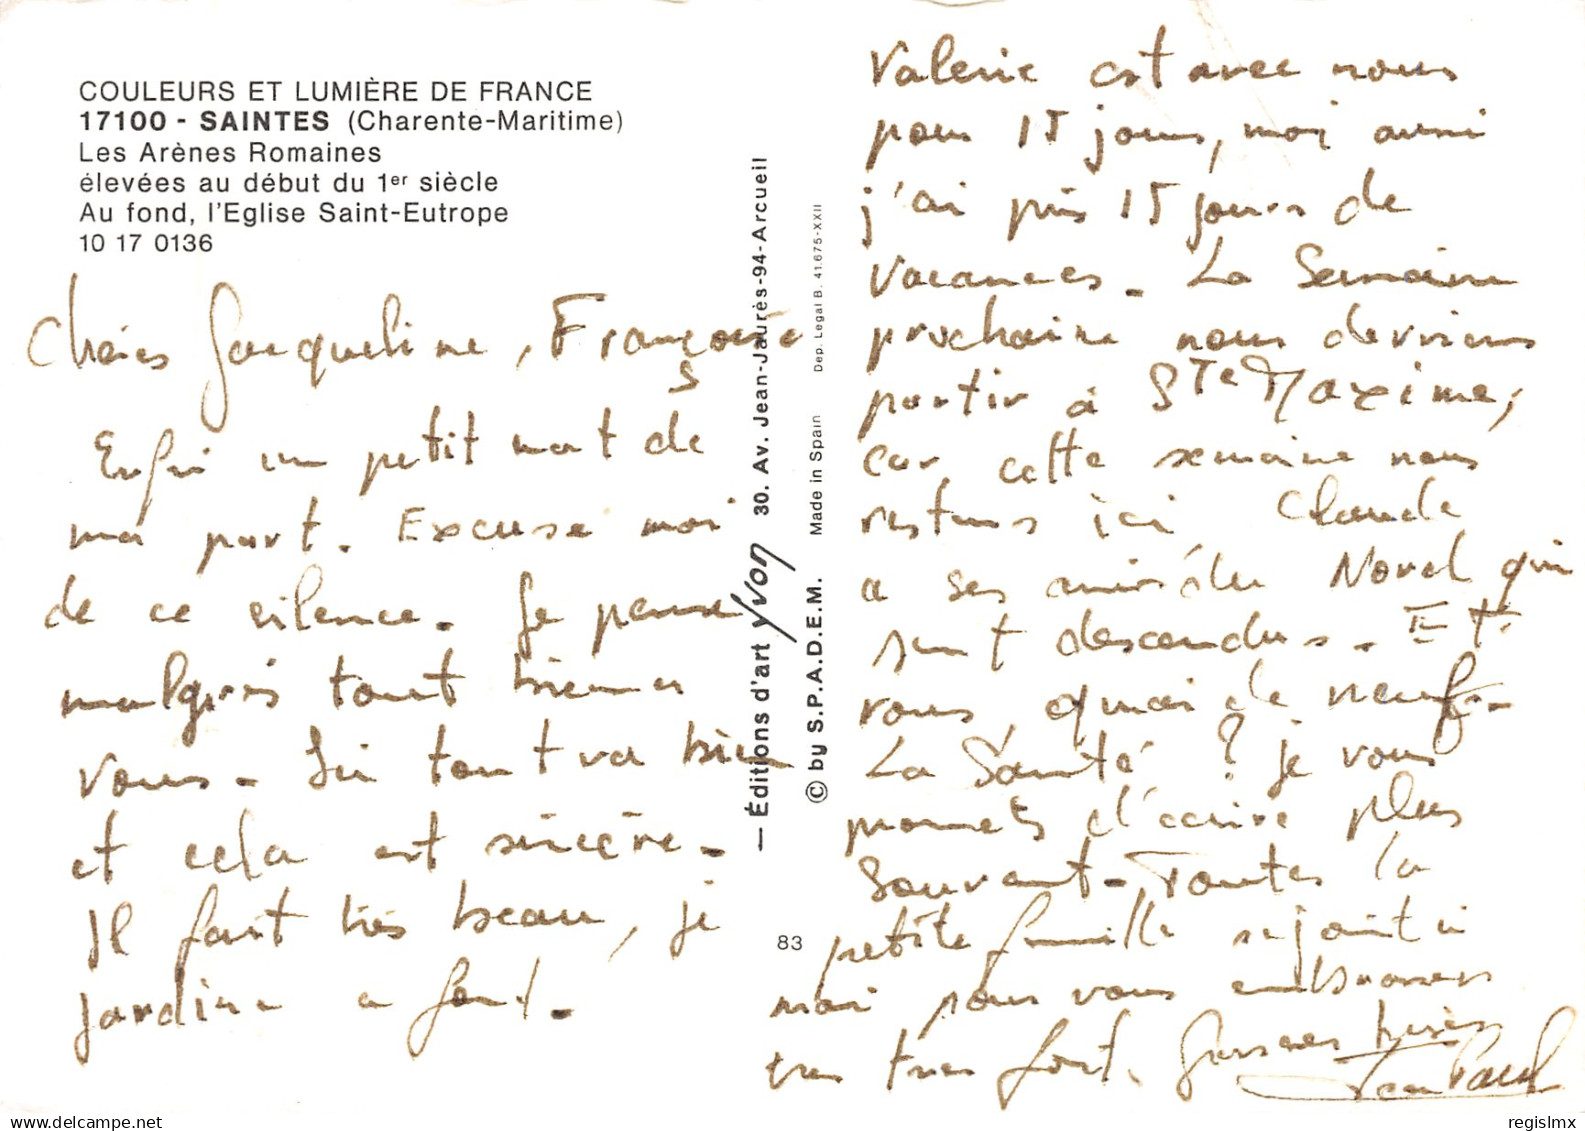 COULEURS ET LUMIÈRE DE FRANCE
17100 - SAINTES (Charente-Maritime)
Les Arènes Romaines
élevées au début du 1er siècle
Au fond, l'Eglise Saint-Eutrope
10 17 0136
Chères Jacqueline, Françoise
Enfin un petit mot de
ma part. Excuse moi
de ce silence. Je pense
malgrés tout bien a
vous. Ici tout va bien
et cela est sincère.
Il fait très beau, je
jardine a fond.
— Éditions d'art yvon 30. Av. Jean-Jaurès-94-Arcueil
© by S.P.A.D.E.M. Made in Spain Dep. Legal B. 41.675-XXII
83
Valerie est avec nous
pour 15 jours, moi aussi
j'ai pris 15 jours de
vacances. La Semaine
prochaine nous devrions
partir à Ste Maxime,
car cette semaine nous
restons ici Claude
a ses amis du Nord qui
sont descendus. Et
vous, quoi de neuf.
La Santé ? je vous
promets d'écrire plus
Souvent. Toutes la
petite famille se joint a
moi pour vous embrasser
très fort. Grosses bises
Jean Paul
regislmx